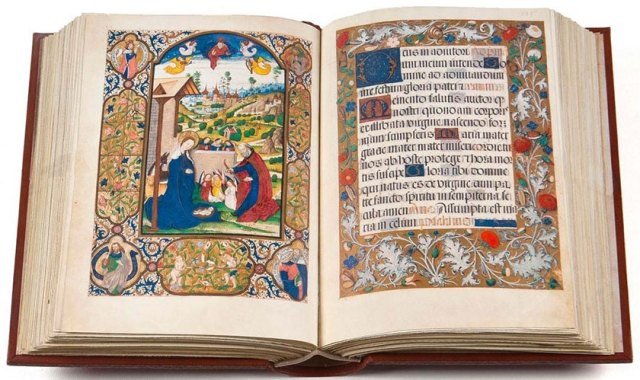 Deus in adiutori
um meum intende Do
mine ad adiuuandum
me festina gloria patri
Memento salutis auctor q
nostri quondam corporis
ex illibata virgine nascendo for
mam sumpseris Maria mater
gratie mater misericordie
nos ab hoste protege et hora mor
tis suscipe Gloria tibi
qui natus es de virgine cum pa
tre sancto spiritu in sempiterna se
cula amen Assumpta est ma
ria in celum